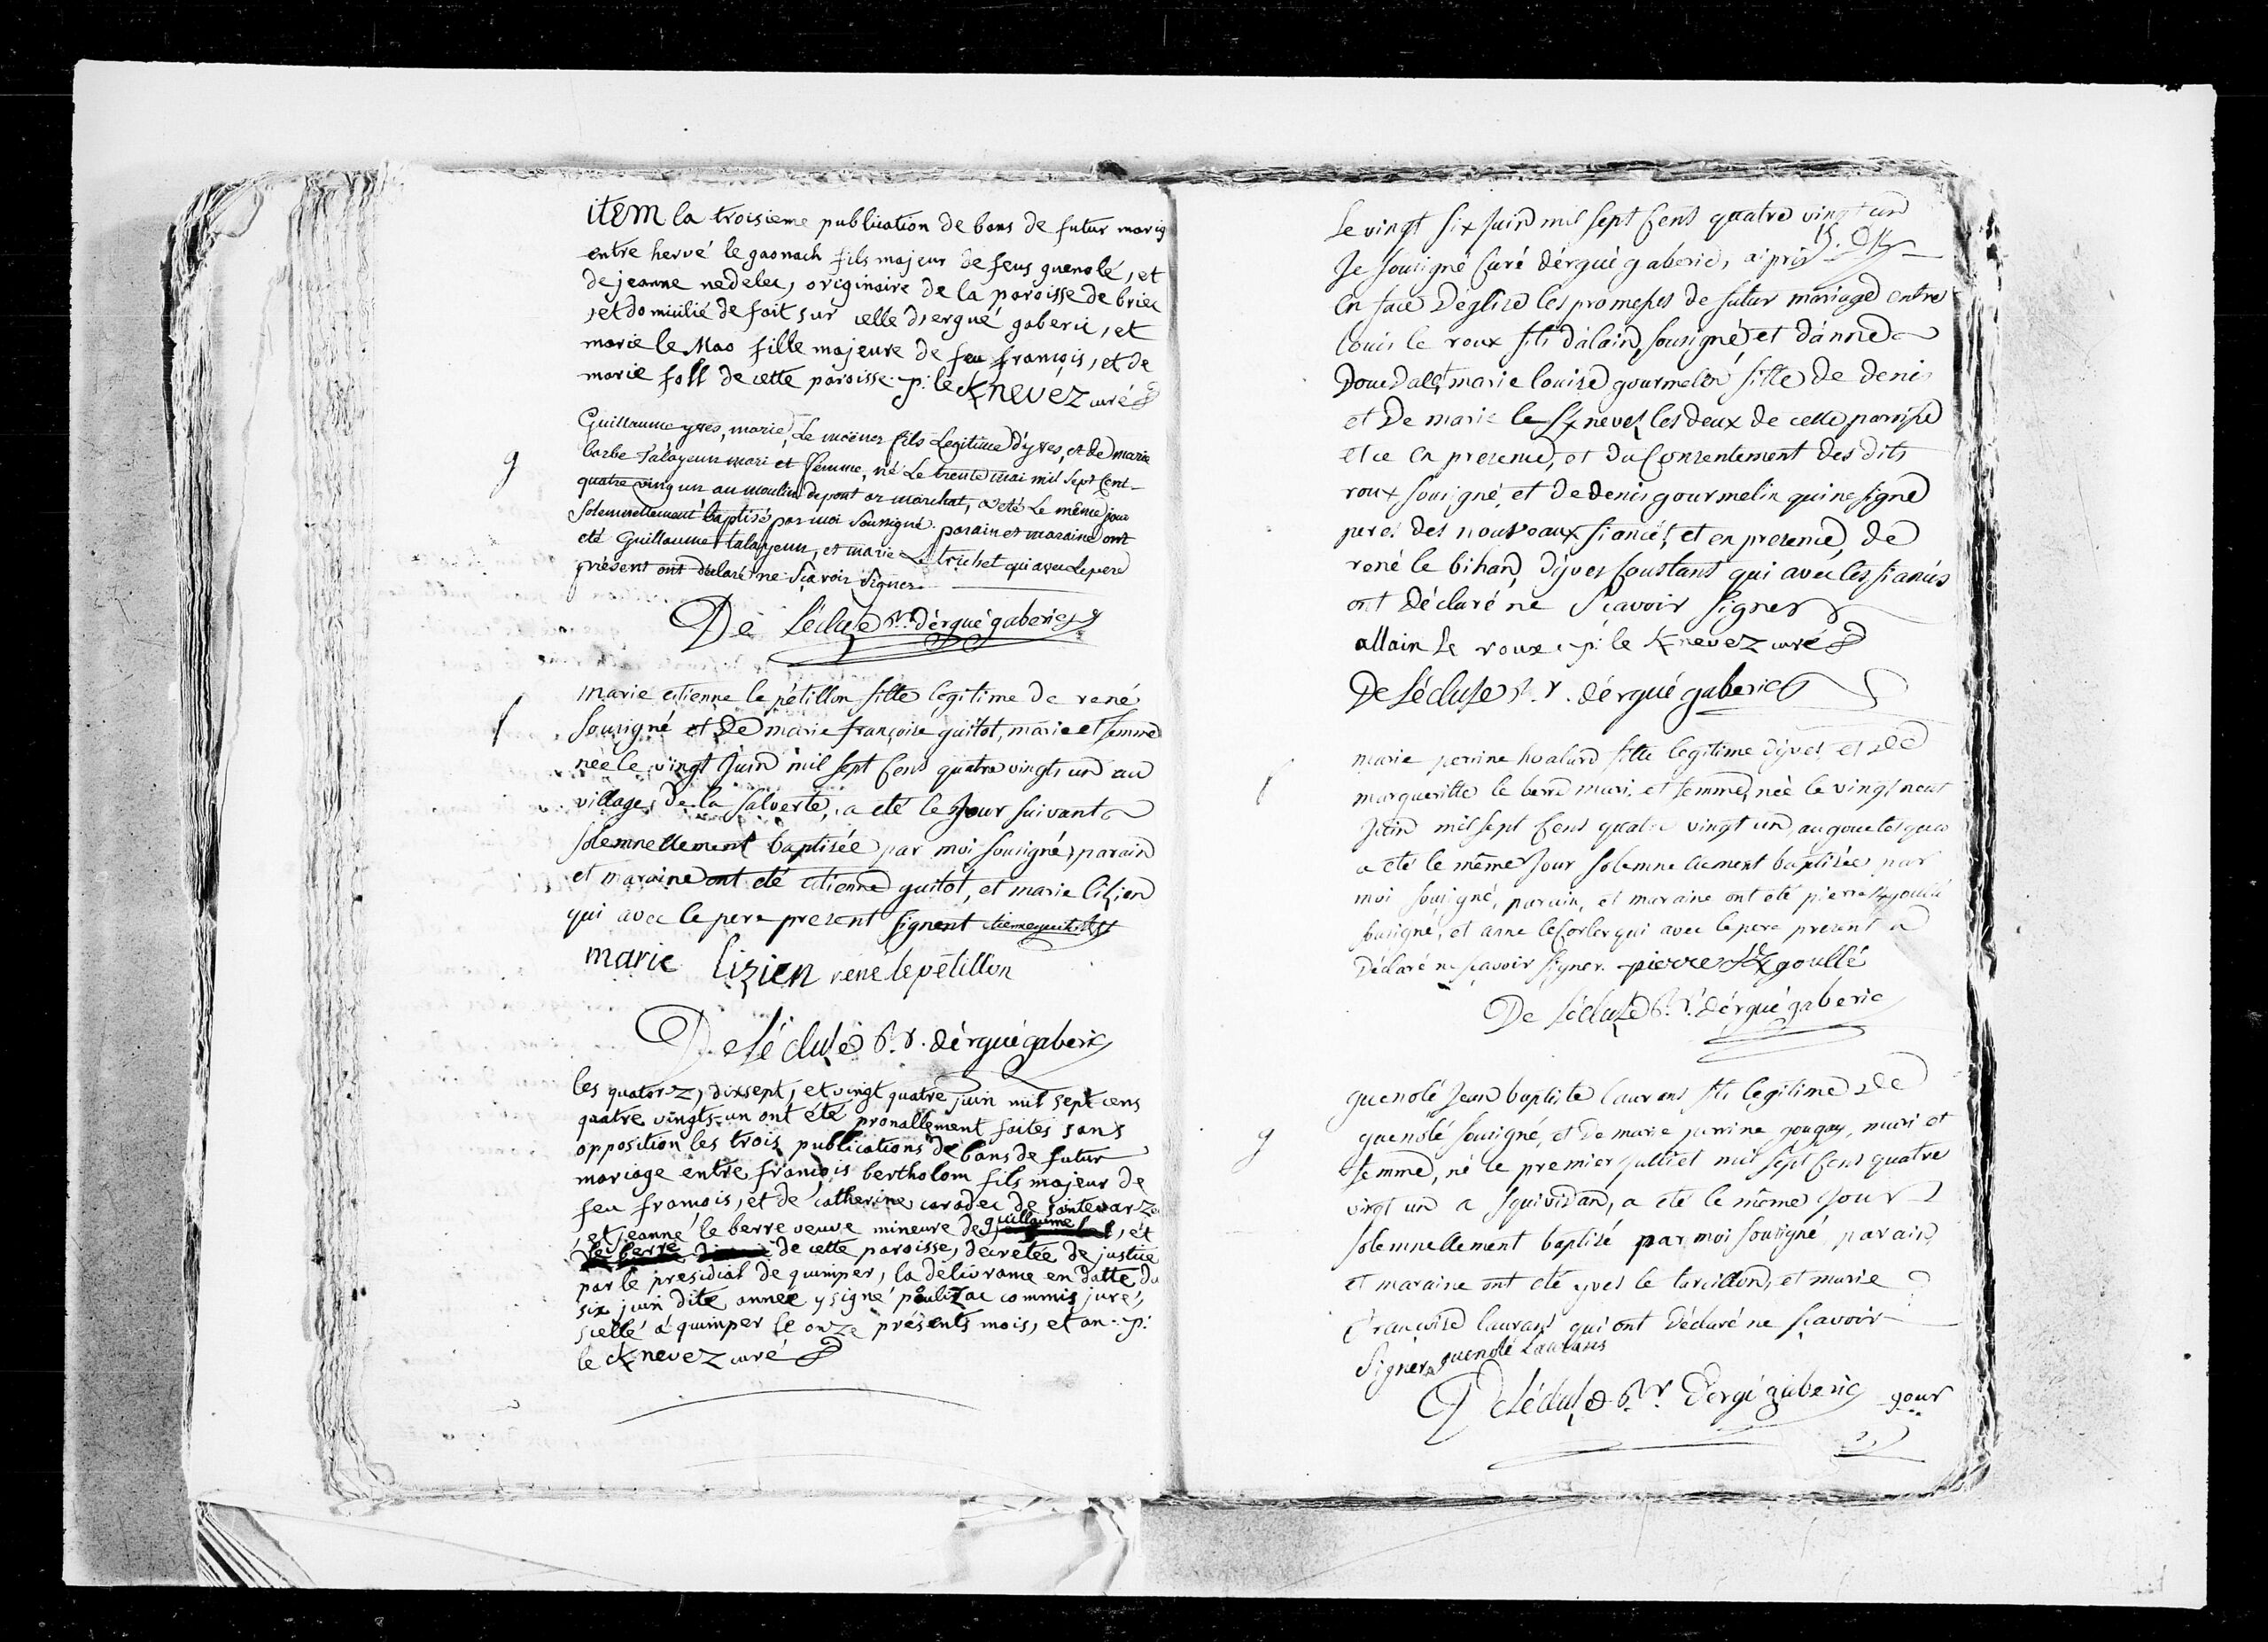 item la troisieme publication de bans de futur mariag
entre hervé le gaonach fils majeur de feus guenolé, et
de jeanne nedelec, originaire de la paroisse de briec
, et domicilié de fait sur celle d'ergué gaberic, et
marie le Mao fille majeure de feu françois, et de
marie foll de cette paroisse. p: le Knevez curé
Guillaume yves, marie, Le moënner fils Legitime d'yves, et de marie
g
barbe Talayeur mari et femme, né Le trente mai mil sept Cent
quatre vingt un au moulin de pont ar marchat, a eté Le même jour
solemnellement baptisé par moi soussigné. parain et maraine ont
eté Guillaume talayeur, et marie Le trichet qui avec Le pere
présent ont déclaré ne sçavoir signer.
De Lécluse r. d'ergué gaberic
marie etienne le pétillon fille legitime de rené
f
sousigné et De marie françoise guitot, marie et femme
née le vingt Juin mil sept Cens quatre vingts un au
village, de la salverte, a eté le Jour suivant
solemnellement baptisée par moi sousigné, parain
et maraine ont eté etienne guitot, et marie lizien
qui avec le pere present signent etienne guitot
marie lizien rené le pétillon
De Lécluse r. d'ergué gaberic
les quatorz, dixsept, et vingt quatre juin mil sept cens
quatre vingts-un ont été pronallement faites sans
opposition les trois publications de bans de futur
mariage entre françois bertholom fils majeur de
feu françois, et de catherine caradec de
, et jeanne le berre veuve mineure de guillaume , et
le berre de cette paroisse, decretée de justice
par le presidial de quimper, la délivrance en datte du
six juin dite année ysigné poulizac commis juré,
scellé à quimper le onze présents mois, et an. p:
le Knevez curé
Le vingt six Juin mil sept Cens quatre vingt un
15.
Je sousigné Curé d'ergué gaberic, ai pris
en face D'église les promesses de futur mariage entre
louis le roux fils d'alain, sousigné, et d'anne
Douedal et marie louise gourmelen fille de denis
et De marie le Knevez les deux de cette paroisse
et ce en presence, et du Consentement des dits
roux sousigné, et de denis gourmelin qui ne signe
peres des nouveaux fiancés, et en presence, de
rené le bihan, d'yves Coustans qui avec les fiancés
ont déclaré ne sçavoir signer
allain le roux p: le Knevez curé
De Lécluse r. d'ergué gaberic
marie perrine hvalard fille legitime d'yves et de
f
margueritte le berre mari, et femme, née le vingt neuf
Juin mil sept Cens quatre vingt un au
a eté le même Jour solemnellement baptisée par
moi sousigné, parain, et maraine ont eté pierre Kgoullé
sousigné, et anne le Corler qui avec le pere present a
déclaré ne sçavoir signer. pierre Kgoullé
De Lécluse r. d'ergué gaberic
guenolé Jean baptiste laurans fils legitime de
g
guenolé sousigné, et de marie perrine gougay, mari et
femme, né le premier Juillet mil sept Cens quatre
vingt un a squividan, a eté le même Jour
solemnellement baptisé par moi sousigné parain
et maraine ont eté yves le tarcillon, et marie
françoise laurans qui ont déclaré ne sçavoir
signer guenolé Laurans
De Lécluse r. d'ergé gaberic
pour